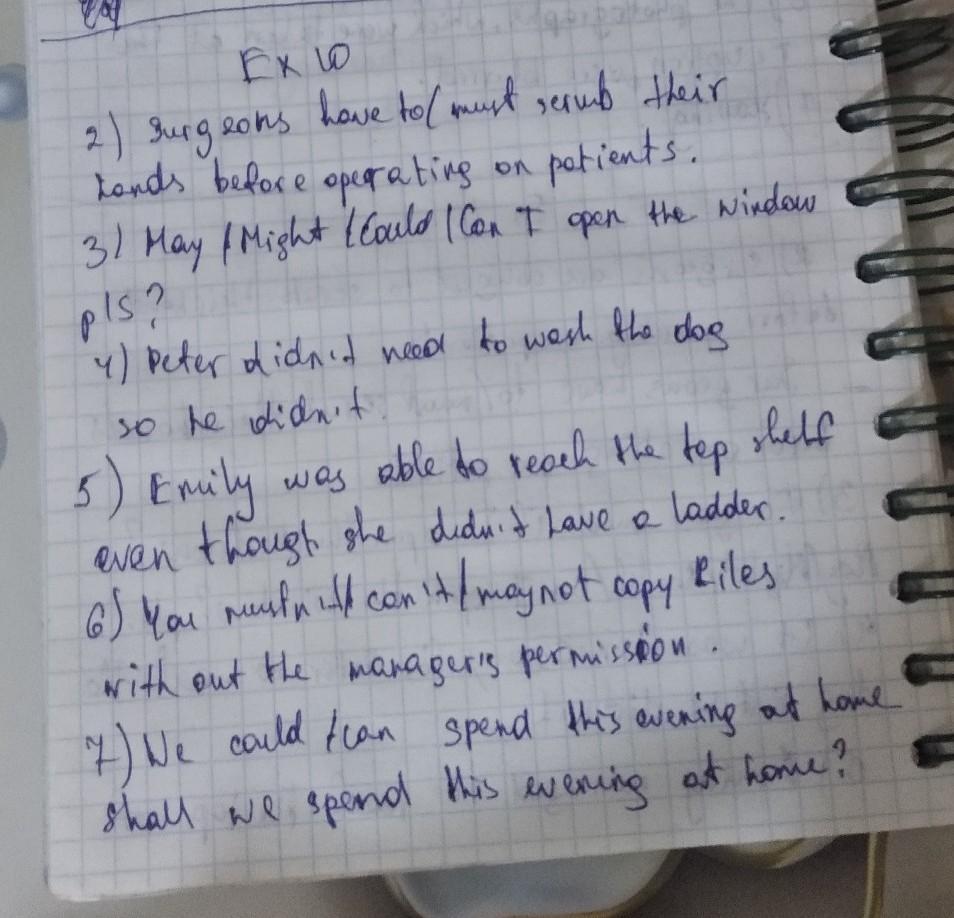 Ex 10
2) Surgeons have to/ must scrub their
hands before operating on patients.
3) May / Might / Could / Can I open the window
pls?
4) Peter didn't need to wash the dog
so he didn't.
5) Emily was able to reach the top shelf
even though she didn't have a ladder.
6) You mustn't/ can't/ may not copy files
with out the manager's permission.
7) We could / can spend this evening at home
shall we spend this evening at home?